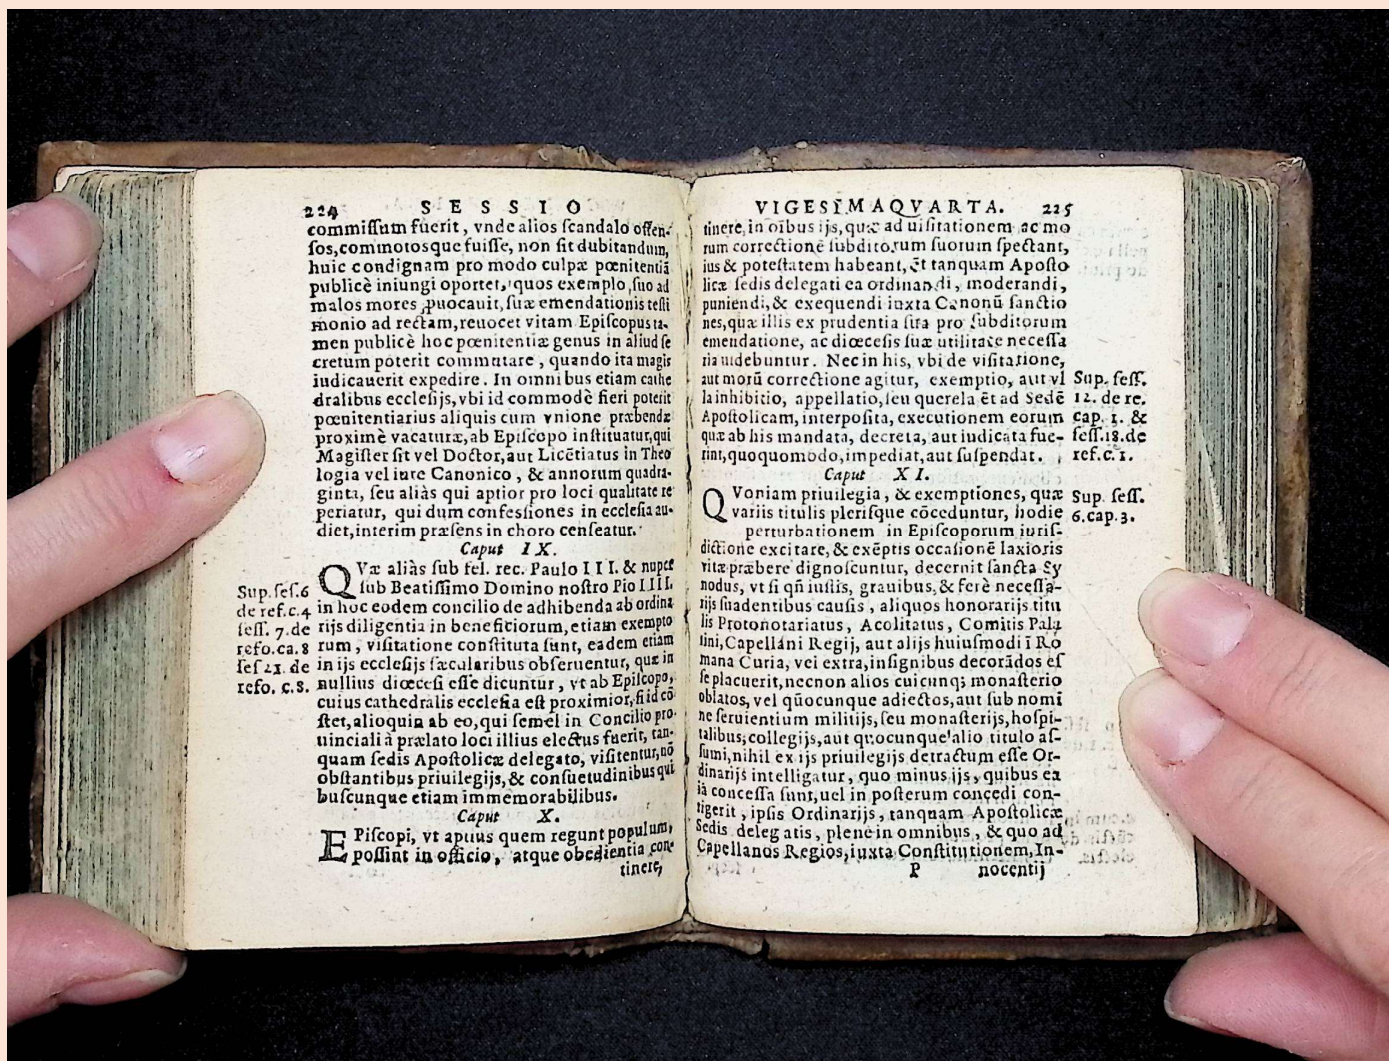 224 SESSIO
commiſſum fuerit, vnde alios ſcandalo offen-
ſos, commotosque fuiſſe, non ſit dubitandum,
huic condignam pro modo culpæ pœnitentiā
publicè iniungi oportet, quos exemplo ſuo ad
malos mores ꝓuocauit, ſuæ emendationis teſti
monio ad rectam, reuocet vitam Epiſcopus ta-
men publicè hoc pœnitentiæ genus in aliud ſe
cretum poterit commutare, quando ita magis
iudicauerit expedire. In omnibus etiam cathe
dralibus eccleſijs, vbi id commodè fieri poterit
pœnitentiarius aliquis cum vnione præbendæ
proximè vacaturæ, ab Epiſcopo inſtituatur, qui
Magiſter ſit vel Doctor, aut Licētiatus in Theo
logia vel iure Canonico, & annorum quadra-
ginta, ſeu aliàs qui aptior pro loci qualitate re
periatur, qui dum confeſſiones in eccleſia au-
diet, interim præſens in choro cenſeatur.
Caput IX.
QVæ aliàs ſub fel. rec. Paulo III. & nuper
ſub Beatiſſimo Domino noſtro Pio IIII.
in hoc eodem concilio de adhibenda ab ordina
rijs diligentia in beneficiorum, etiam exempto
rum, viſitatione conſtituta ſunt, eadem etiam
in ijs eccleſijs ſæcularibus obſeruentur, quæ in
nullius diœceſi eſſe dicuntur, vt ab Epiſcopo,
cuius cathedralis eccleſia eſt proximior, ſi id cō
ſtet, alioquin ab eo, qui ſemel in Concilio pro-
uinciali à prælato loci illius electus fuerit, tan-
quam ſedis Apoſtolicæ delegato, viſitentur, nō
obſtantibus priuilegijs, & conſuetudinibus qui
buſcunque etiam immemorabilibus.
Caput X.
EPiſcopi, vt aptius quem regunt populum,
poſſint in officio, atque obedientia con-
tinere,
Sup. ſeſ. 6
de ref. c. 4
ſeſſ. 7. de
refo. ca. 8
ſeſ 21. de
refo. c. 8.
VIGESIMAQVARTA. 225
tinere, in oībus ijs, quæ ad uiſitationem ac mo
rum correctionē ſubditorum ſuorum ſpectant,
ius & poteſtatem habeant, ēt tanquam Apoſto
licæ ſedis delegati ea ordinandi, moderandi,
puniendi, & exequendi iuxta Canonū ſanctio
nes, quæ illis ex prudentia ſua pro ſubditorum
emendatione, ac diœceſis ſuæ utilitate neceſſa
ria uidebuntur. Nec in his, vbi de viſitatione,
aut morū correctione agitur, exemptio, aut vl
la inhibitio, appellatio, ſeu querela ēt ad Sedē
Apoſtolicam, interpoſita, executionem eorum
quæ ab his mandata, decreta, aut iudicata fue-
rint, quoquomodo, impediat, aut ſuſpendat.
Caput XI.
QVoniam priuilegia, & exemptiones, quæ
variis titulis pleriſque cōceduntur, hodie
perturbationem in Epiſcoporum iuriſ-
dictione excitare, & exēptis occaſionē laxioris
vitæ præbere dignoſcuntur, decernit ſancta Sy
nodus, vt ſi qn̄ iuſtis, grauibus, & ferè neceſſa-
rijs ſuadentibus cauſis, aliquos honorarijs titu
lis Protonotariatus, Acolitatus, Comitis Pala
tini, Capellani Regij, aut alijs huiuſmodi ī Ro
mana Curia, vel extra, inſignibus decorādos eſ
ſe placuerit, necnon alios cuicunqꝫ monaſterio
oblatos, vel quōcunque adiectos, aut ſub nomi
ne ſeruientium militijs, ſeu monaſterijs, hoſpi-
talibus, collegijs, aut quocunque alio titulo aſ-
ſumi, nihil ex ijs priuilegijs detractum eſſe Or-
dinarijs intelligatur, quo minus ijs, quibus ea
iā conceſſa ſunt, uel in poſterum concedi con-
tigerit, ipſis Ordinarijs, tanquam Apoſtolicæ
Sedis delegatis, plene in omnibus, & quo ad
Capellanos Regios, iuxta Conſtitutionem, In-
P nocentij
Sup. ſeſſ.
12. de re.
cap. 1. &
ſeſſ. 18. de
ref. c. 1.
Sup. ſeſſ.
6. cap. 3.